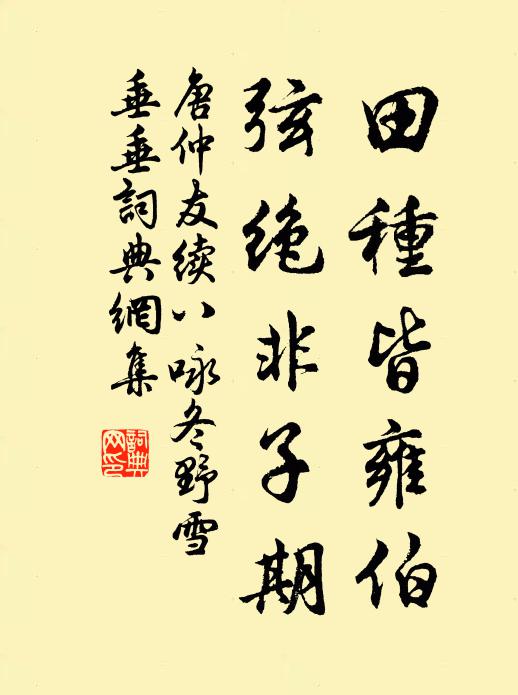 田種皆雍伯
弦絶非子期
唐仲友續八咏冬野雪
垂垂詞典網集
詞典网印